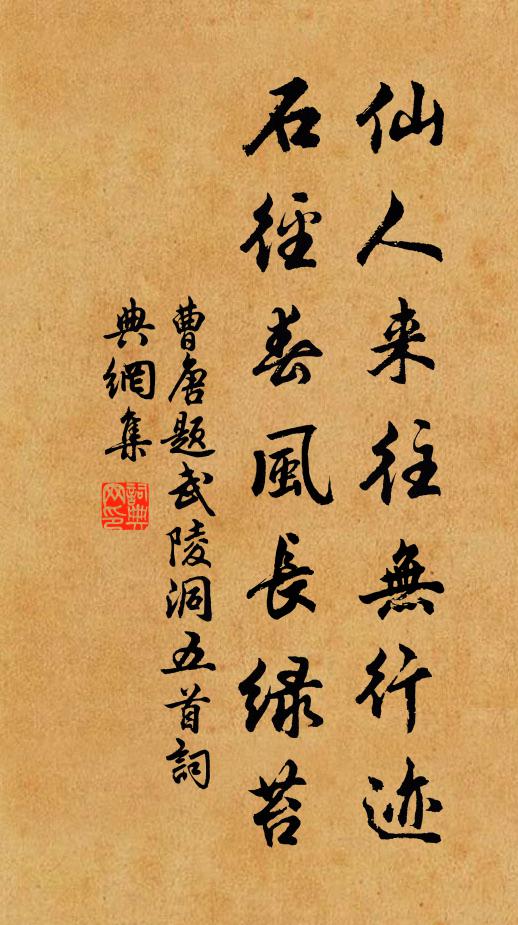 仙人来往無行迹
石徑春風長緑苔
曹唐題武陵洞五首詞
典網集
詞典網印